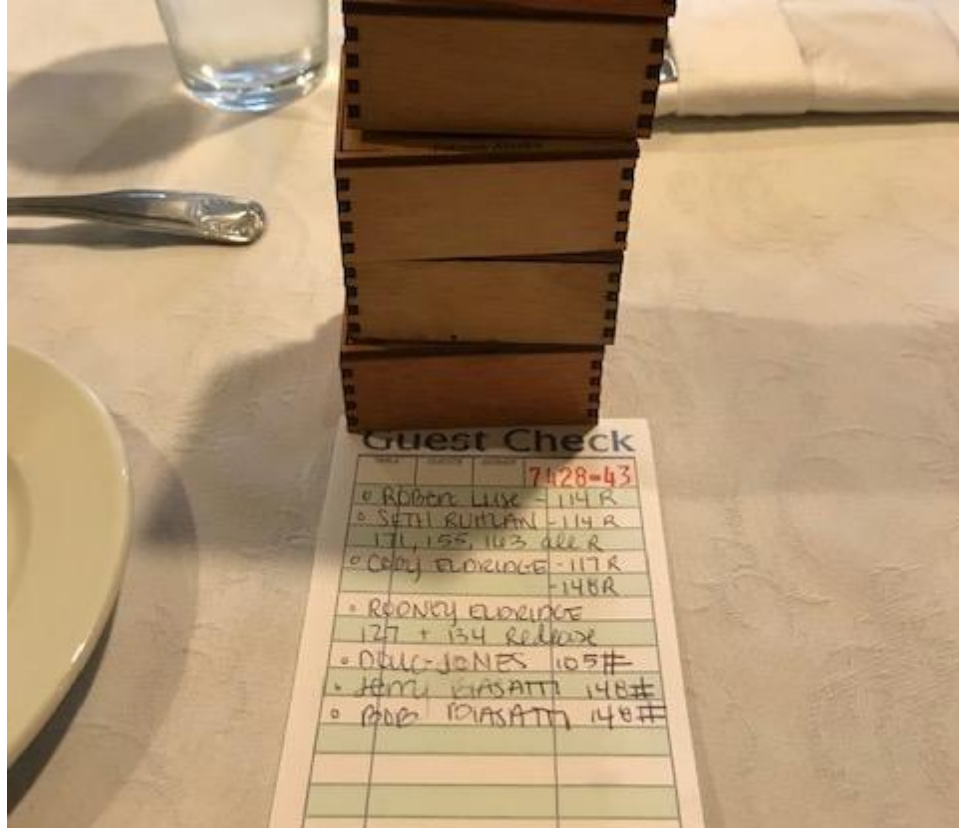 Guest Check
7428-43
ROBERT LUSE - 114 R
SETH RUHLAN - 114 R
171, 155, 163 all R
CODY ELDRIDGE - 117 R
- 148 R
RODNEY ELDRIDGE
127 + 134 Release
JONES 105#
Jerry BIASATTI 148#
BOB BIASATTI 148#